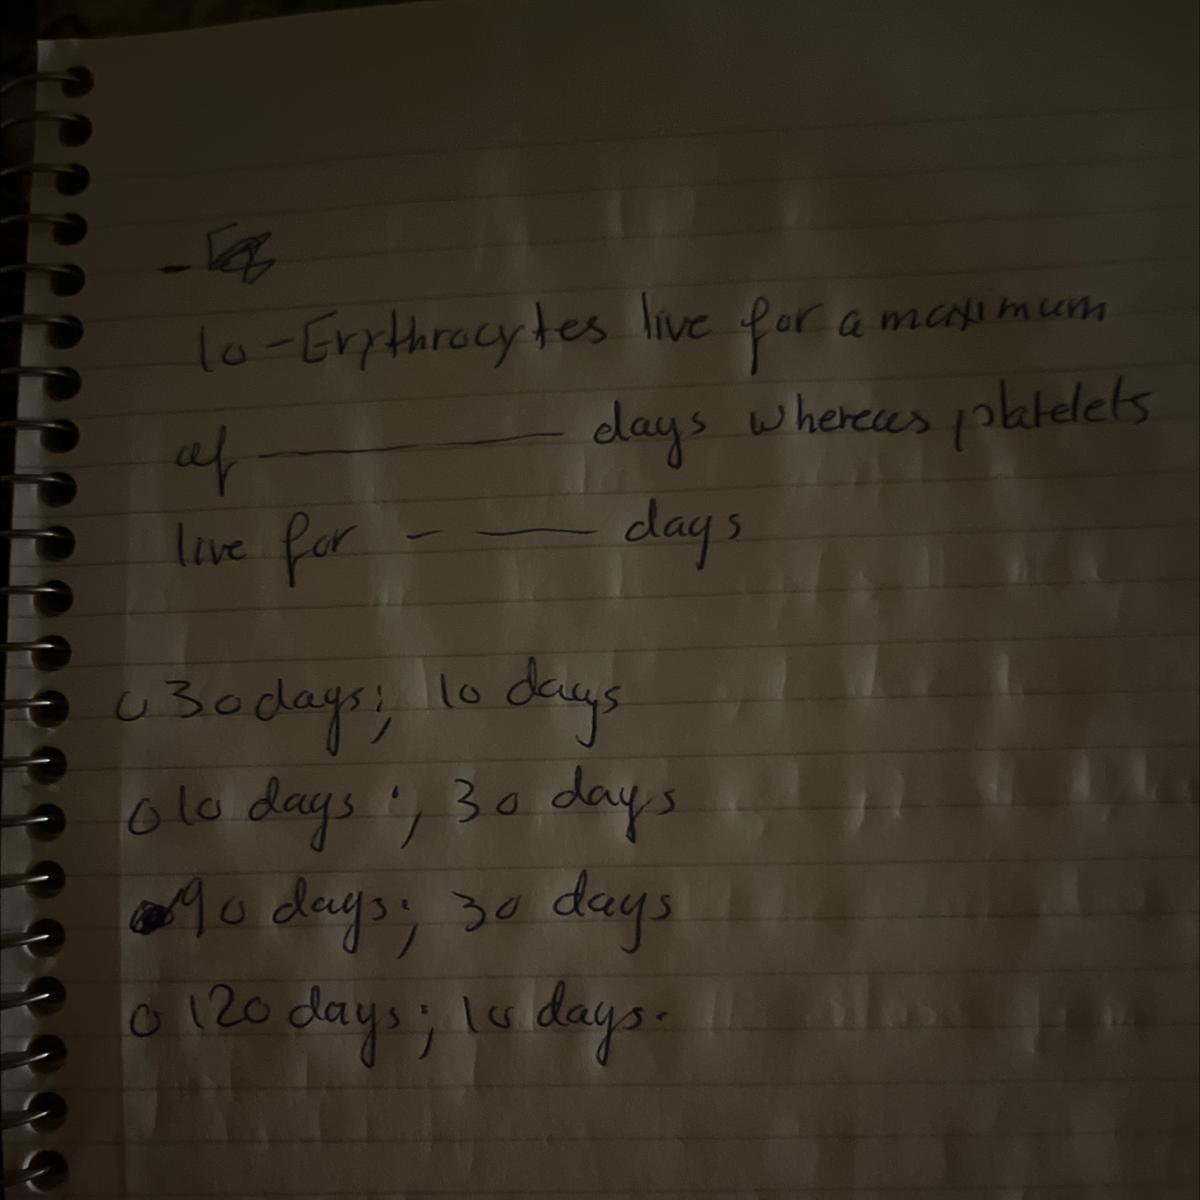 10-Erythrocytes live for a maximum
of ——— days whereas platelets
live for - —— days
○ 30 days; 10 days
○ 10 days; 30 days
90 days; 30 days
○ 120 days; 10 days.